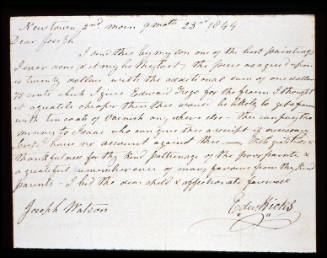 Newtown 2nd morn 9 moth 23rd 1844
Dear Joseph
I send thee by my son one of the best paintings
I ever done (& it may be the last). the price as agreed upon
is twenty dollars with the additional sum of one dollar
75 cents which I give Edward Trego for the frame. I thought
it equal cheaper than thee would be likely to get a frame
with ten coats of varnish any where else. thee can pay the
money to Isaac who can give thee a receipt if necessary
but I have no account against thee — With gratitude &
thankfulness for thy kind patronage of the poor painter &
a grateful remembrance of many favours from thy kind
parents - I bid thee dear child & affectionate farewell
Joseph Watson
Edw. Hicks